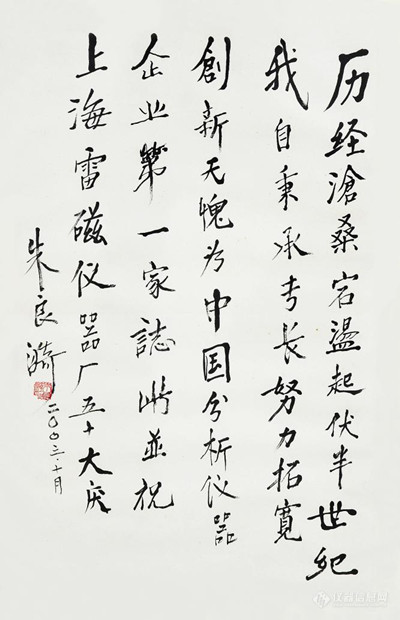 历经滄桑宕盪起伏半世纪
我自秉承专长努力拓寬
創新无愧为中国分析仪器
企业第一家誌此並祝
上海雷磁仪器厂五十大庆
朱良漪
二〇〇三·十月
仪器信息网